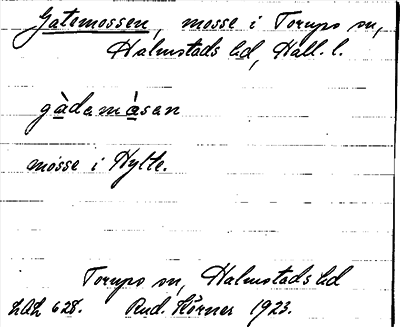 Gatemossen, mosse i Torups sn,
Halmstads hd, Hall. l.
gàdemàsen
mosse i Hylte.
Torups sn, Halmstads hd
628. Rud. Körner 1923.